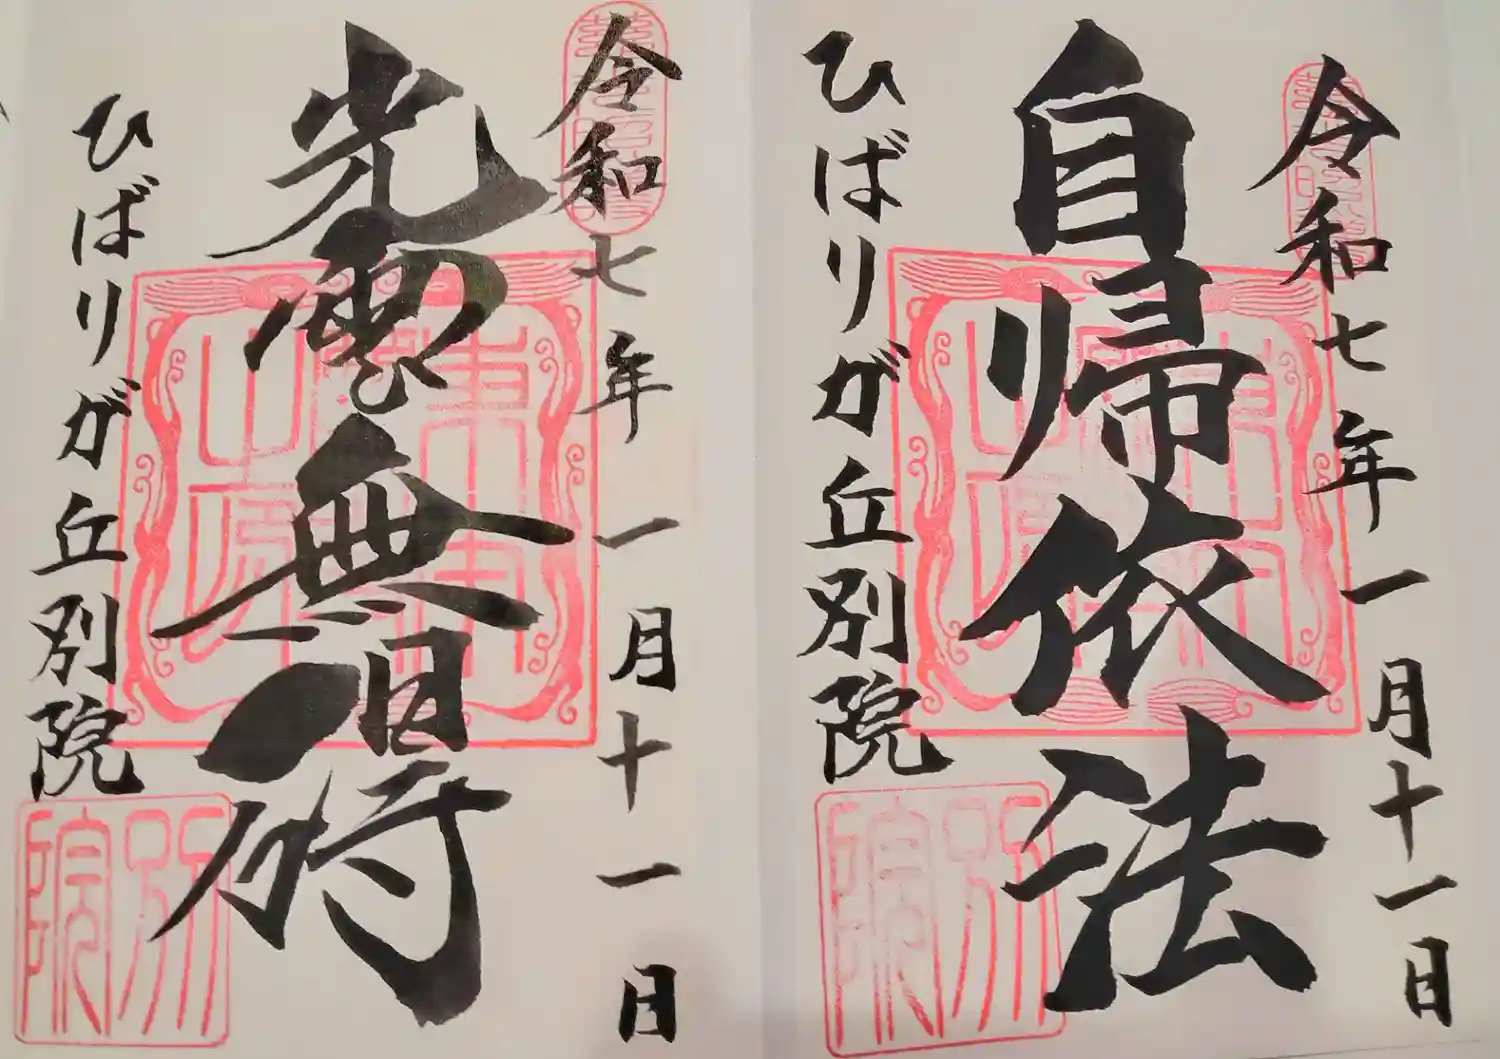 令和七年一月十一日
自帰依法
ひばりが丘別院
別院
令和七年一月十一日
光雲無碍
ひばりが丘別院
別院